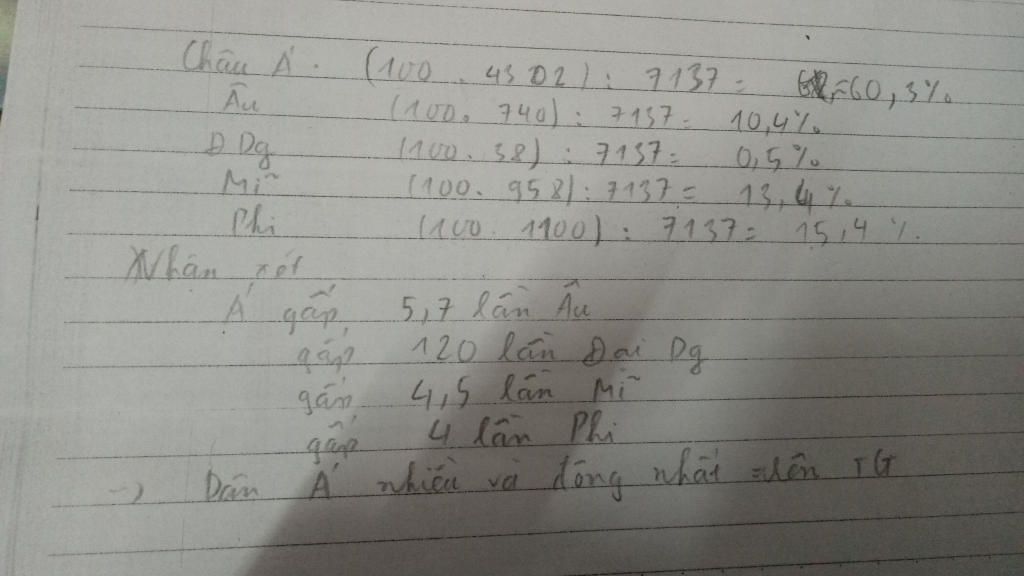 Châu Á. (100 . 4302) : 7137 = =60,3%
Âu (100. 740) : 7137= 10,4%
Đ Dg (100. 38) : 7137= 0,5%
Mĩ (100. 958) : 7137= 13,4%
Phi (100. 1100) : 7137= 15,4%
Nhận xét
Á gấp 5,7 lần Âu
gấp 120 lần Đại Dg
gấp 4,5 lần Mĩ
gấp 4 lần Phi
-> Dân Á nhiều và đông nhất trên TG